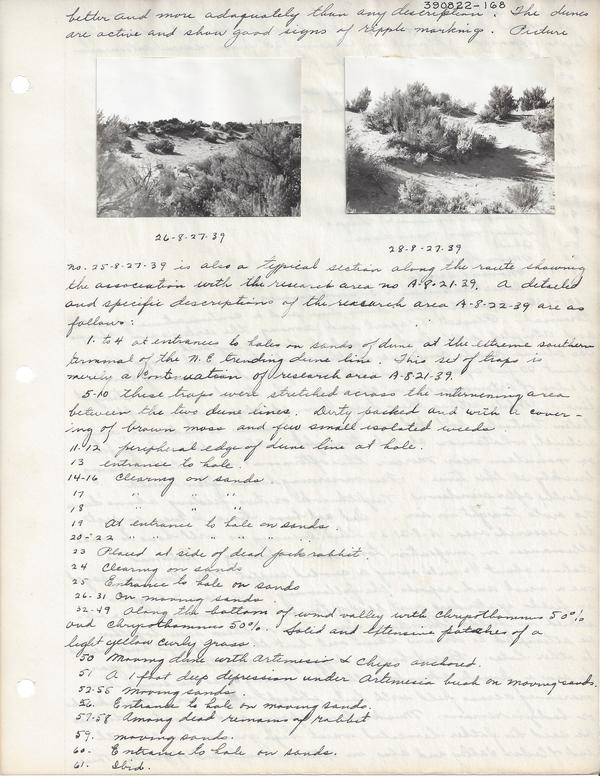 390822-168
better and more adaquately than any description. The dunes
are active and show good signs of ripple markings. Picture
26-8-27-39
28-8-27.39
no. 25-8-27-39 is also a typical section along the route showing
the association with the research area no A-8-21-39. A detailed
and specific descriptions of the research area A-8-22-39 are as
follows:
1. to 4 at entrances to holes on sands of dune at the extreme southern
terminal of the N.E. trending dune line. This set of traps is
merely a continuation of research area A-8-21-39.
5-10 these traps were stretched across the intervening area
between the two dune lines. Dirty packed and with a cover-
ing of brown moss and few small isolated weeds.
11-12 peripheral edge of dune line at hole.
13 entrance to hole.
14-16 Clearing on sands.
17 " " "
18 " " "
19 At entrance to hole on sands.
20-22 " " " " " "
23 Placed at side of dead jack rabbit.
24 Clearing on sands
25 Entrance to hole on sands
26-31 On moving sands.
32-49 Along the bottom of wind valley with Chrysothamnus 50%
and Chrysothamnus 50%. Solid and extensive patches of a
light yellow curly grass.
50 Moving dune with Artemesia & Chryso anchored.
51 A 1 foot deep depression under Artemesia bush on moving sands.
52-55 Moving sands.
56. Entrance to hole on moving sands.
57-58 Among dead remains of rabbit
59. moving sands.
60. Entrance to hole on sands.
61. Ibid.